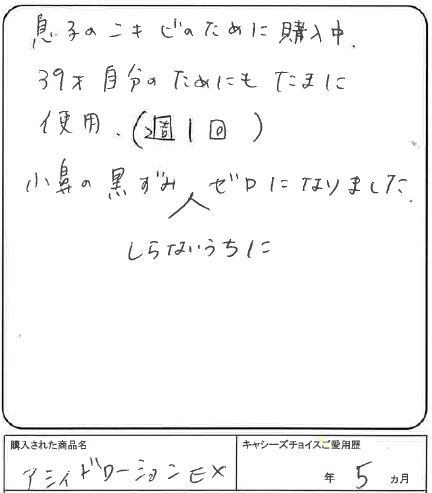 息子のニキビのために購入中.
39才自分のためにもたまに
使用.(週1回)
小鼻の黒ずみ ゼロになりました.
しらないうちに
購入された商品名
アシィドローションEX
キャシーズチョイスご愛用歴
年 5 カ月